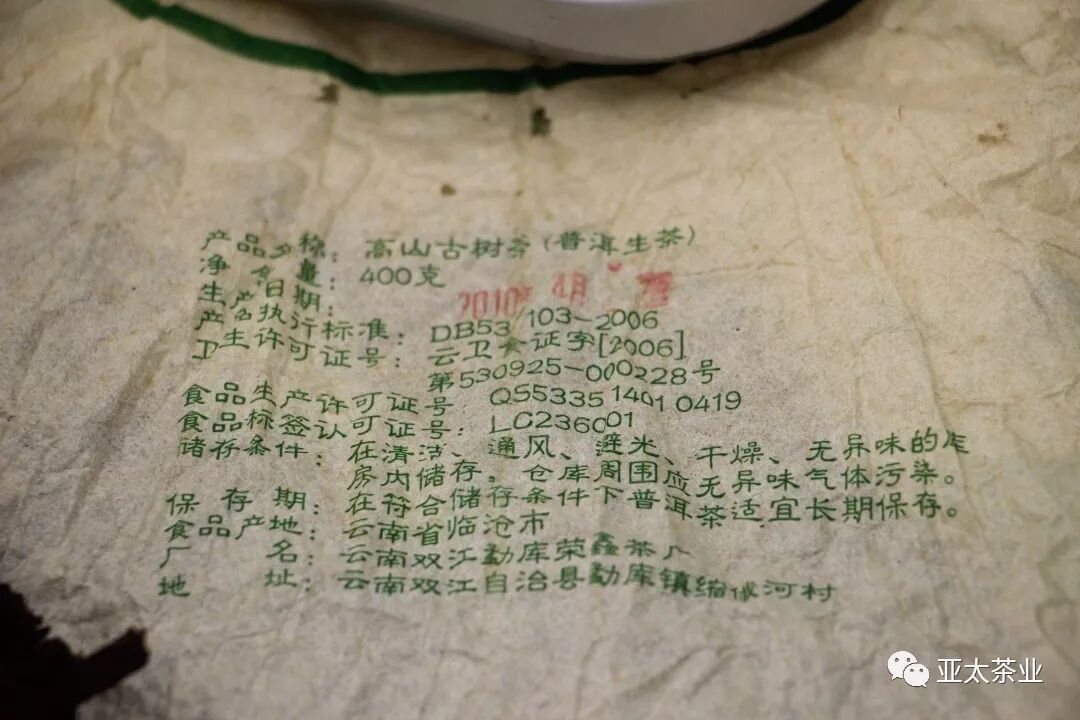 产品名称：高山古树茶（普洱生茶）
净含量：400克
生产日期：2010年 4月
产品执行标准：DB53/103-2006
卫生许可证号：云卫食证字[2006]
第530925-000228号
食品生产许可证号 QS5335 1401 0419
食品标签认可证号：LC236001
储存条件：在清洁、通风、避光、干燥、无异味的库
房内储存，仓库周围应无异味气体污染。
保存期：在符合储存条件下普洱茶适宜长期保存。
食品产地：云南省临沧市
厂名：云南双江勐库荣鑫茶厂
地址：云南双江自治县勐库镇缩俅河村
亚太茶业